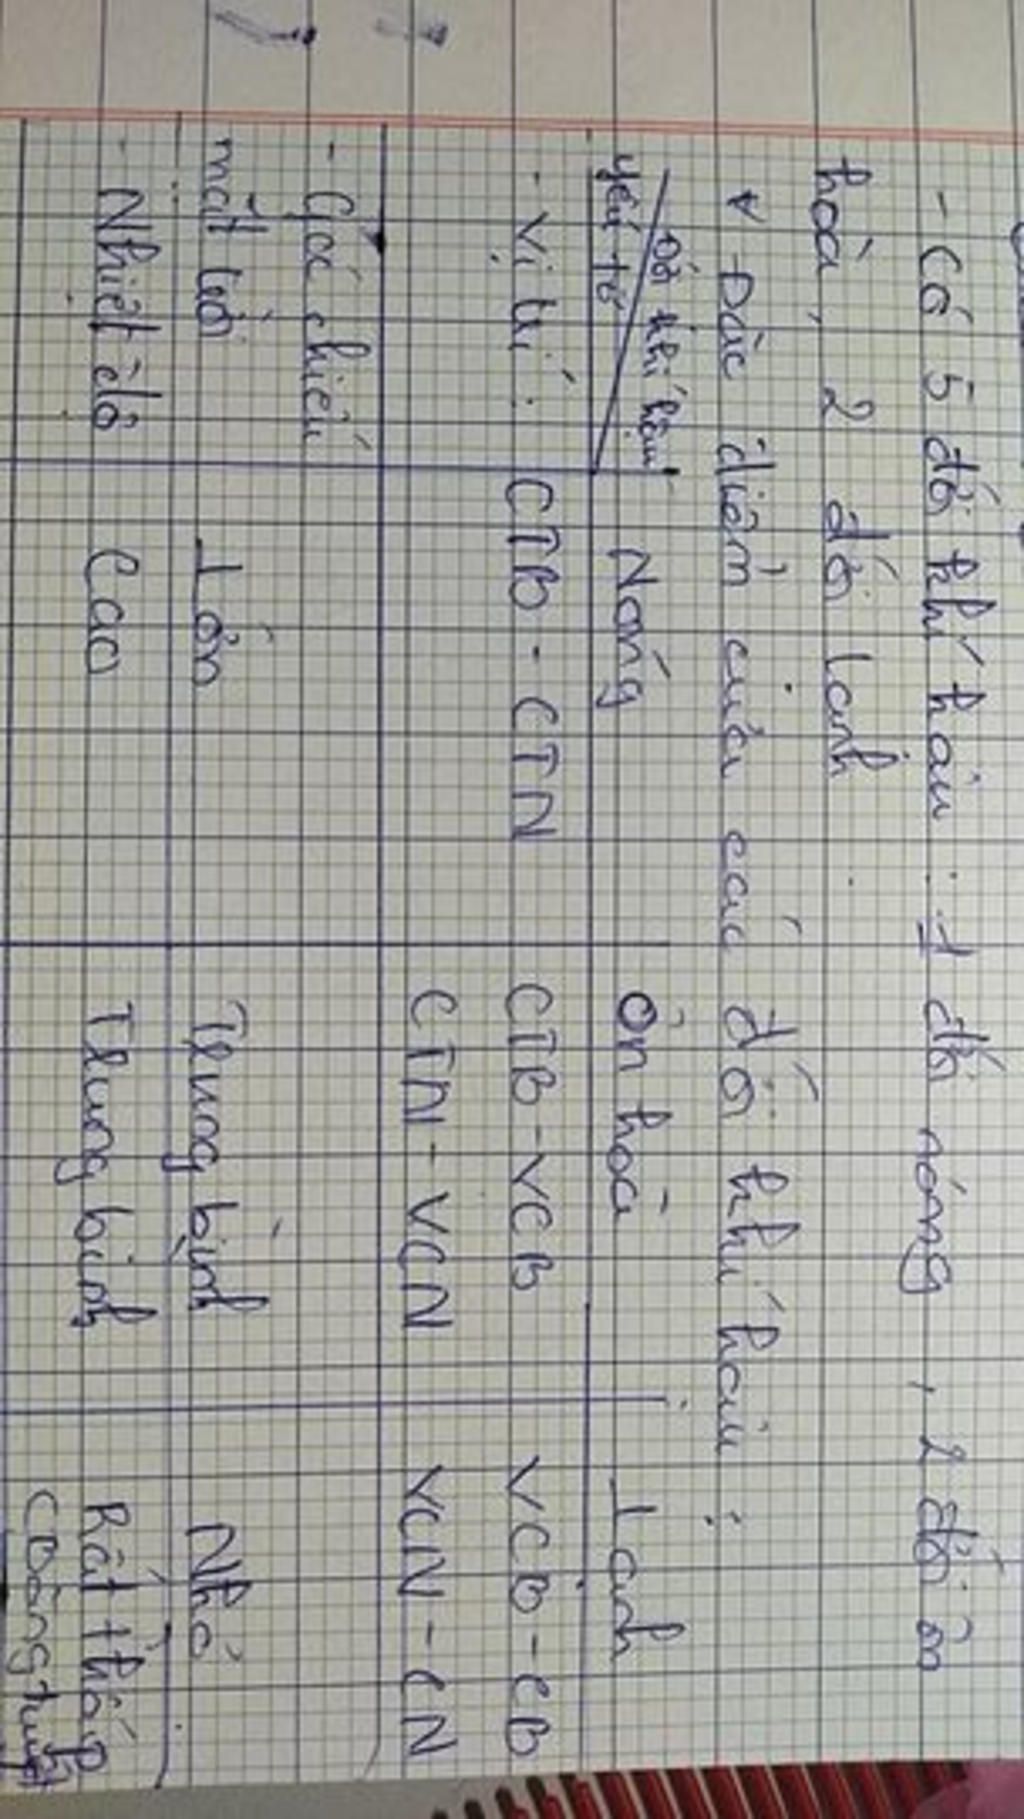 - Có 5 đới khí hậu : 1 đới nóng, 2 đới ôn
hoà, 2 đới lạnh
* Đặc điểm của các đới khí hậu :
Đới khí hậu
yếu tố
Nóng
Ôn hoà
Lạnh
- Vị trí :
CTB - CTN
CTB - VCB
VCB - CB
CTN - VCN
VCN - CN
- Góc chiếu
mặt trời
Lớn
Trung bình
Nhỏ
- Nhiệt độ
Cao
Trung bình
Rất thấp